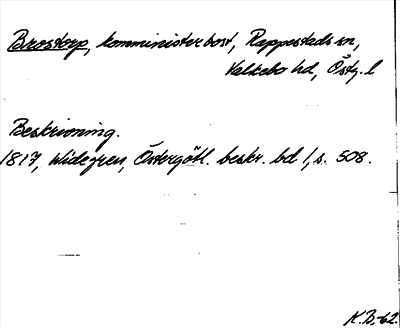 Brostorp, komministerbost, Rappestads sn,
Valkebo hd, Östg. l
Beskrivning.
1817, Widegren, Östergötl. beskr. bd 1, s. 508.
K.B.-62.